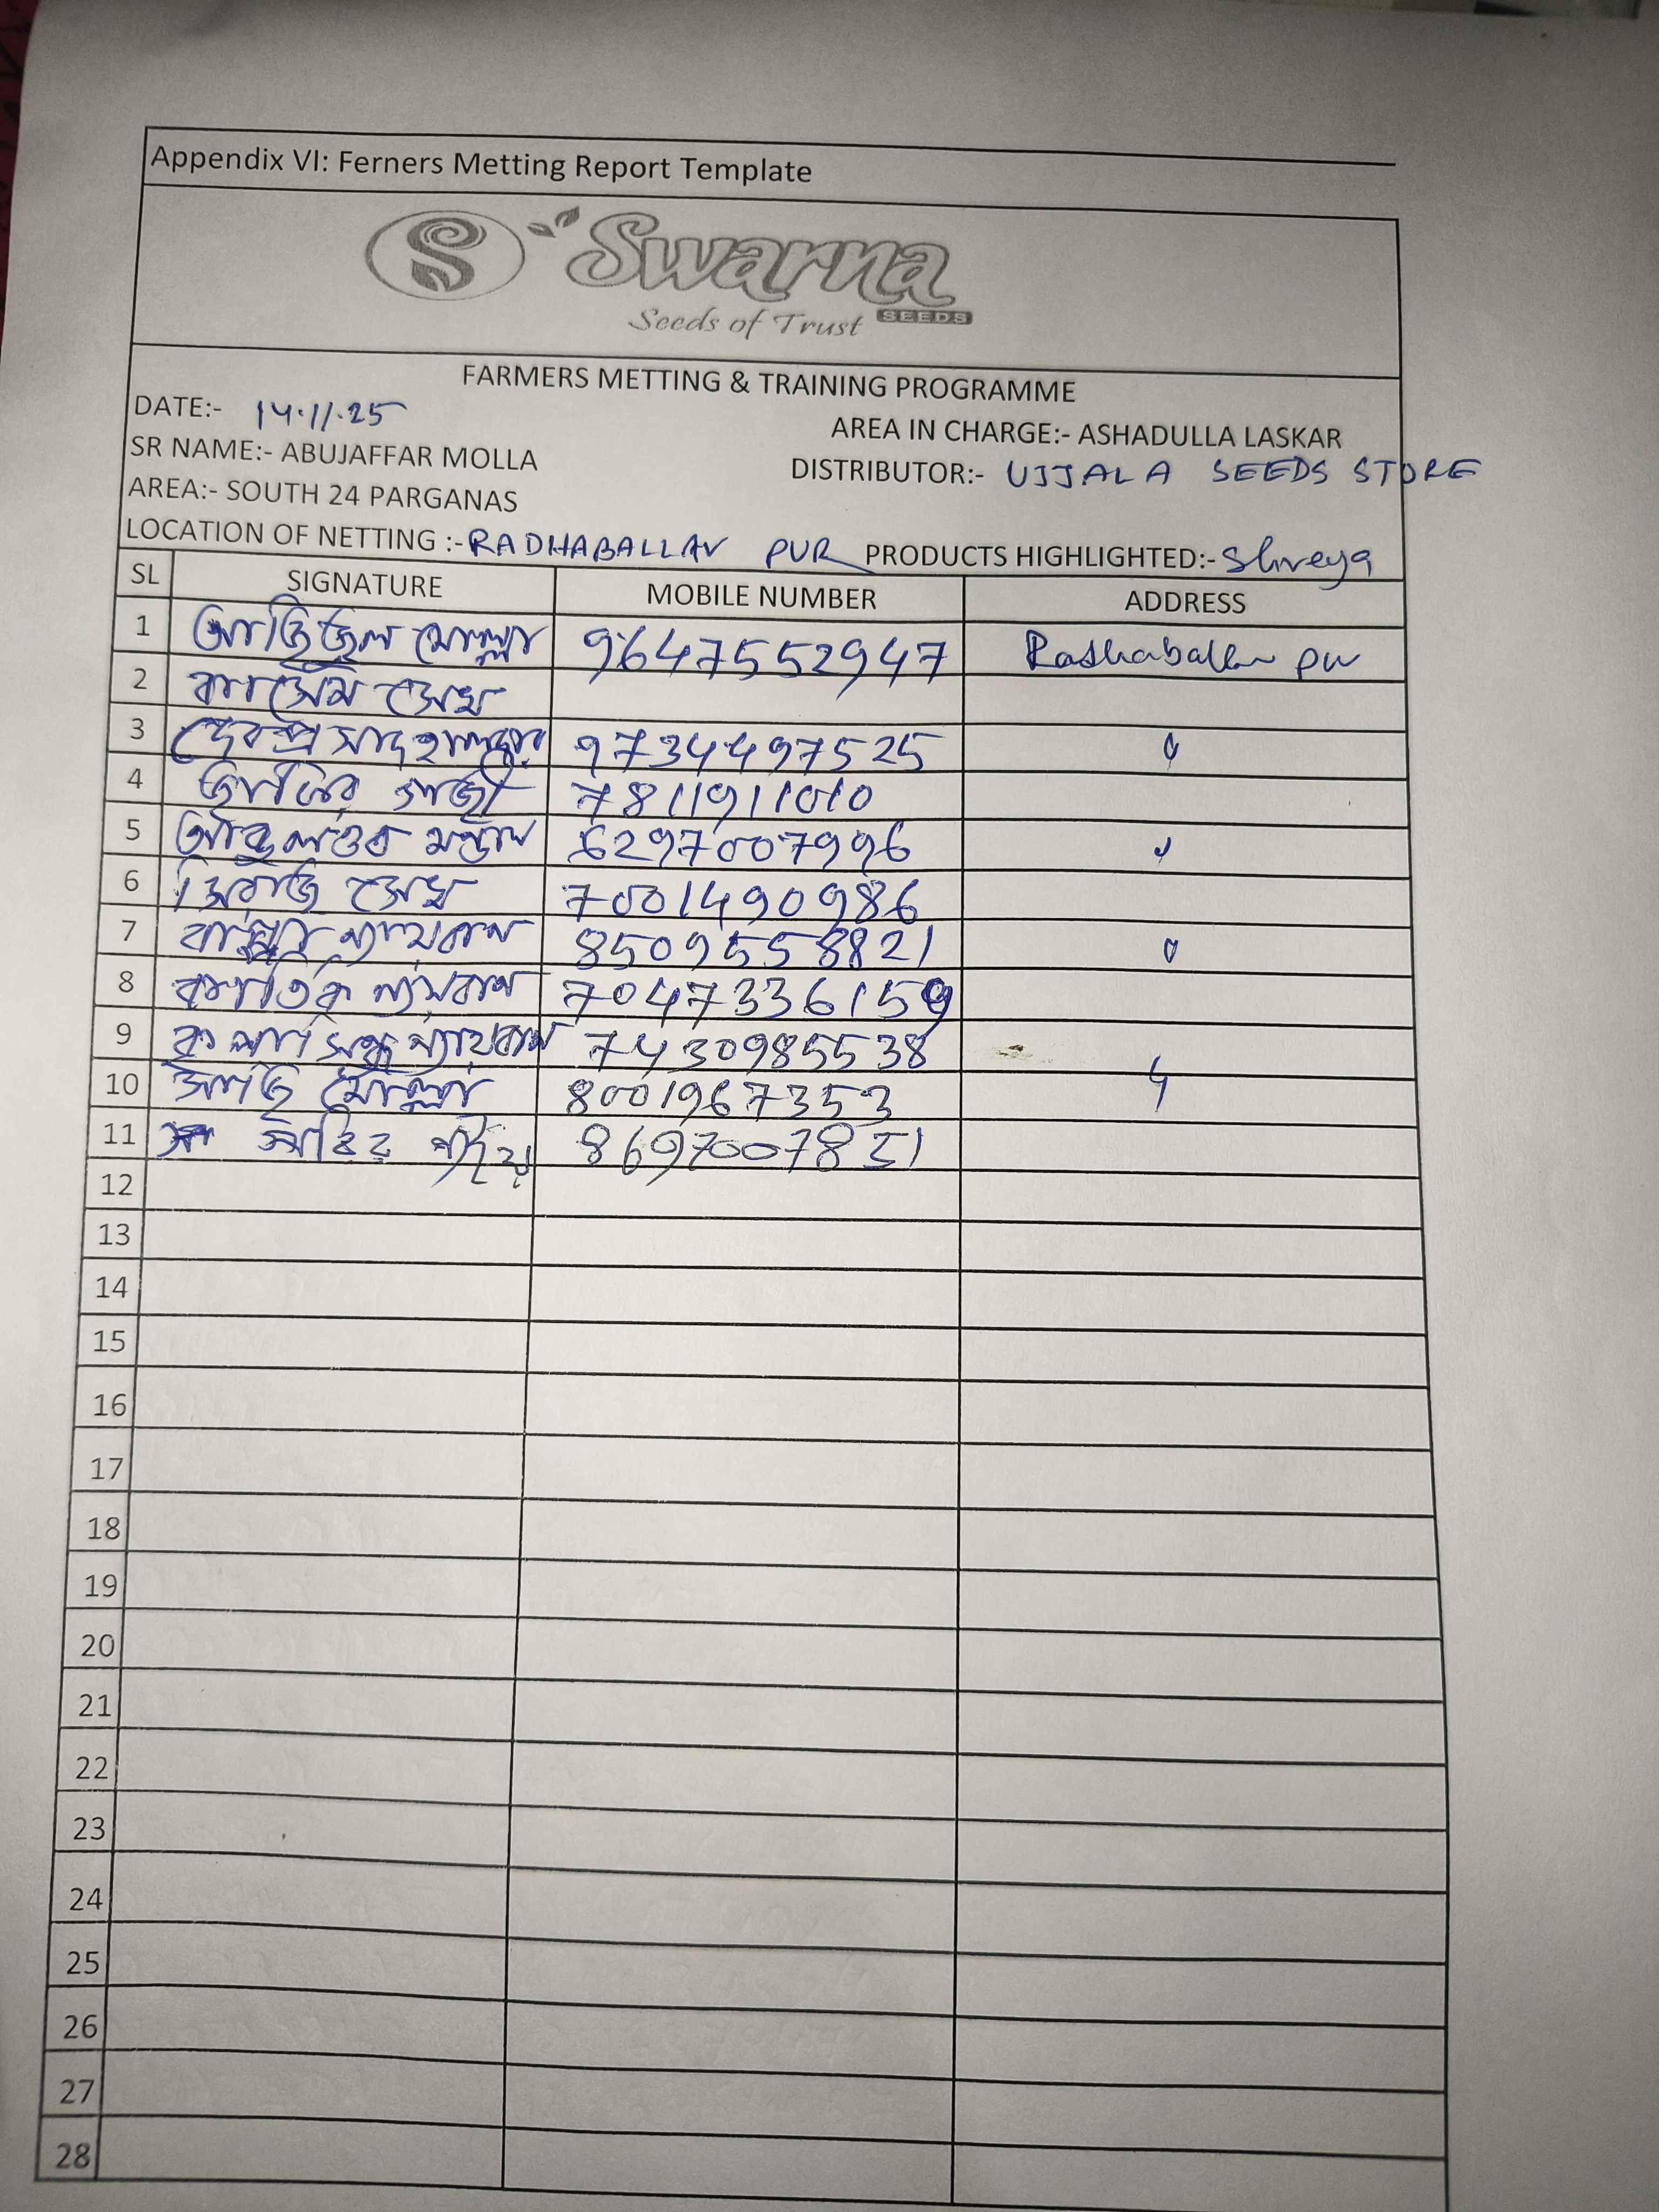 Appendix VI: Ferners Metting Report Template
Swarna
SEEDS
Seeds of Trust
FARMERS METTING & TRAINING PROGRAMME
DATE:- 14.11.25
AREA IN CHARGE:- ASHADULLA LASKAR
SR NAME:- ABUJAFFAR MOLLA
DISTRIBUTOR:- UJJALA SEEDS STORE
AREA:- SOUTH 24 PARGANAS
LOCATION OF NETTING :- RADHABALLAV PUR PRODUCTS HIGHLIGHTED:- Shreya
SL SIGNATURE MOBILE NUMBER ADDRESS
1 আজিজুল মোল্লা 9647552947 Radhaballav pur
2 কাসেম সেখ
3 দেবপ্রসাদ হালদার 9734497525
4 গাজী 7811911010
5 মন্ডাল 6297007996
6 সিরাজ সেখ 7001490986
7 8509558821
8 কার্তিক 7047336159
9 7430985538
10 মোল্লা 8001967353
11 8697007851
12
13
14
15
16
17
18
19
20
21
22
23
24
25
26
27
28